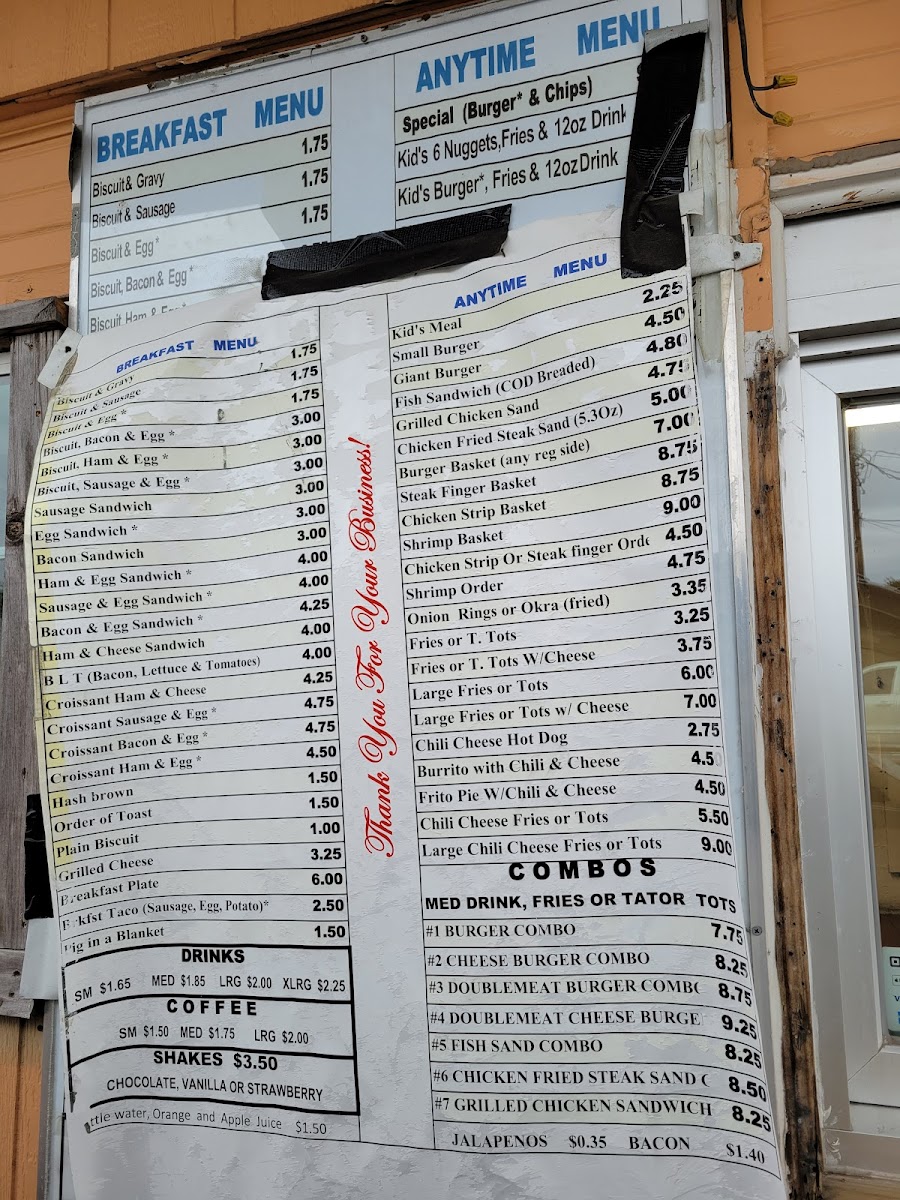 BREAKFAST MENU
Biscuit & Gravy 1.75
Biscuit & Sausage 1.75
Biscuit & Egg* 1.75
Biscuit, Bacon & Egg*
Biscuit Ham &
ANYTIME MENU
Special (Burger* & Chips)
Kid's 6 Nuggets,Fries & 12oz Drink
Kid's Burger*, Fries & 12oz Drink
BREAKFAST MENU
Biscuit & Gravy 1.75
Biscuit & Sausage 1.75
Biscuit & Egg * 1.75
Biscuit, Bacon & Egg * 3.00
Biscuit, Ham & Egg * 3.00
Biscuit, Sausage & Egg * 3.00
Sausage Sandwich 3.00
Egg Sandwich * 3.00
Bacon Sandwich 3.00
Ham & Egg Sandwich * 4.00
Sausage & Egg Sandwich * 4.00
Bacon & Egg Sandwich * 4.25
Ham & Cheese Sandwich 4.00
B L T (Bacon, Lettuce & Tomatoes) 4.00
Croissant Ham & Cheese 4.25
Croissant Sausage & Egg * 4.75
Croissant Bacon & Egg * 4.75
Croissant Ham & Egg * 4.50
Hash brown 1.50
Order of Toast 1.50
Plain Biscuit 1.00
Grilled Cheese 3.25
Breakfast Plate 6.00
kfst Taco (Sausage, Egg, Potato)* 2.50
ig in a Blanket 1.50
DRINKS
SM $1.65 MED $1.85 LRG $2.00 XLRG $2.25
COFFEE
SM $1.50 MED $1.75 LRG $2.00
SHAKES $3.50
CHOCOLATE, VANILLA OR STRAWBERRY
ttle water, Orange and Apple Juice $1.50
Thank You For Your Business!
ANYTIME MENU
Kid's Meal
Small Burger 2.25
Giant Burger 4.50
Fish Sandwich (COD Breaded) 4.80
Grilled Chicken Sand 4.75
Chicken Fried Steak Sand (5.3Oz) 5.00
Burger Basket (any reg side) 7.00
Steak Finger Basket 8.75
Chicken Strip Basket 8.75
Shrimp Basket 9.00
Chicken Strip Or Steak finger Orde 4.50
Shrimp Order 4.75
Onion Rings or Okra (fried) 3.35
Fries or T. Tots 3.25
Fries or T. Tots W/Cheese 3.75
Large Fries or Tots 6.00
Large Fries or Tots w/ Cheese 7.00
Chili Cheese Hot Dog 2.75
Burrito with Chili & Cheese 4.50
Frito Pie W/Chili & Cheese 4.50
Chili Cheese Fries or Tots 5.50
Large Chili Cheese Fries or Tots 9.00
COMBOS
MED DRINK, FRIES OR TATOR TOTS
#1 BURGER COMBO 7.75
#2 CHEESE BURGER COMBO 8.25
#3 DOUBLEMEAT BURGER COMBO 8.75
#4 DOUBLEMEAT CHEESE BURGE 9.25
#5 FISH SAND COMBO 8.25
#6 CHICKEN FRIED STEAK SAND C 8.50
#7 GRILLED CHICKEN SANDWICH 8.25
JALAPENOS $0.35 BACON $1.40